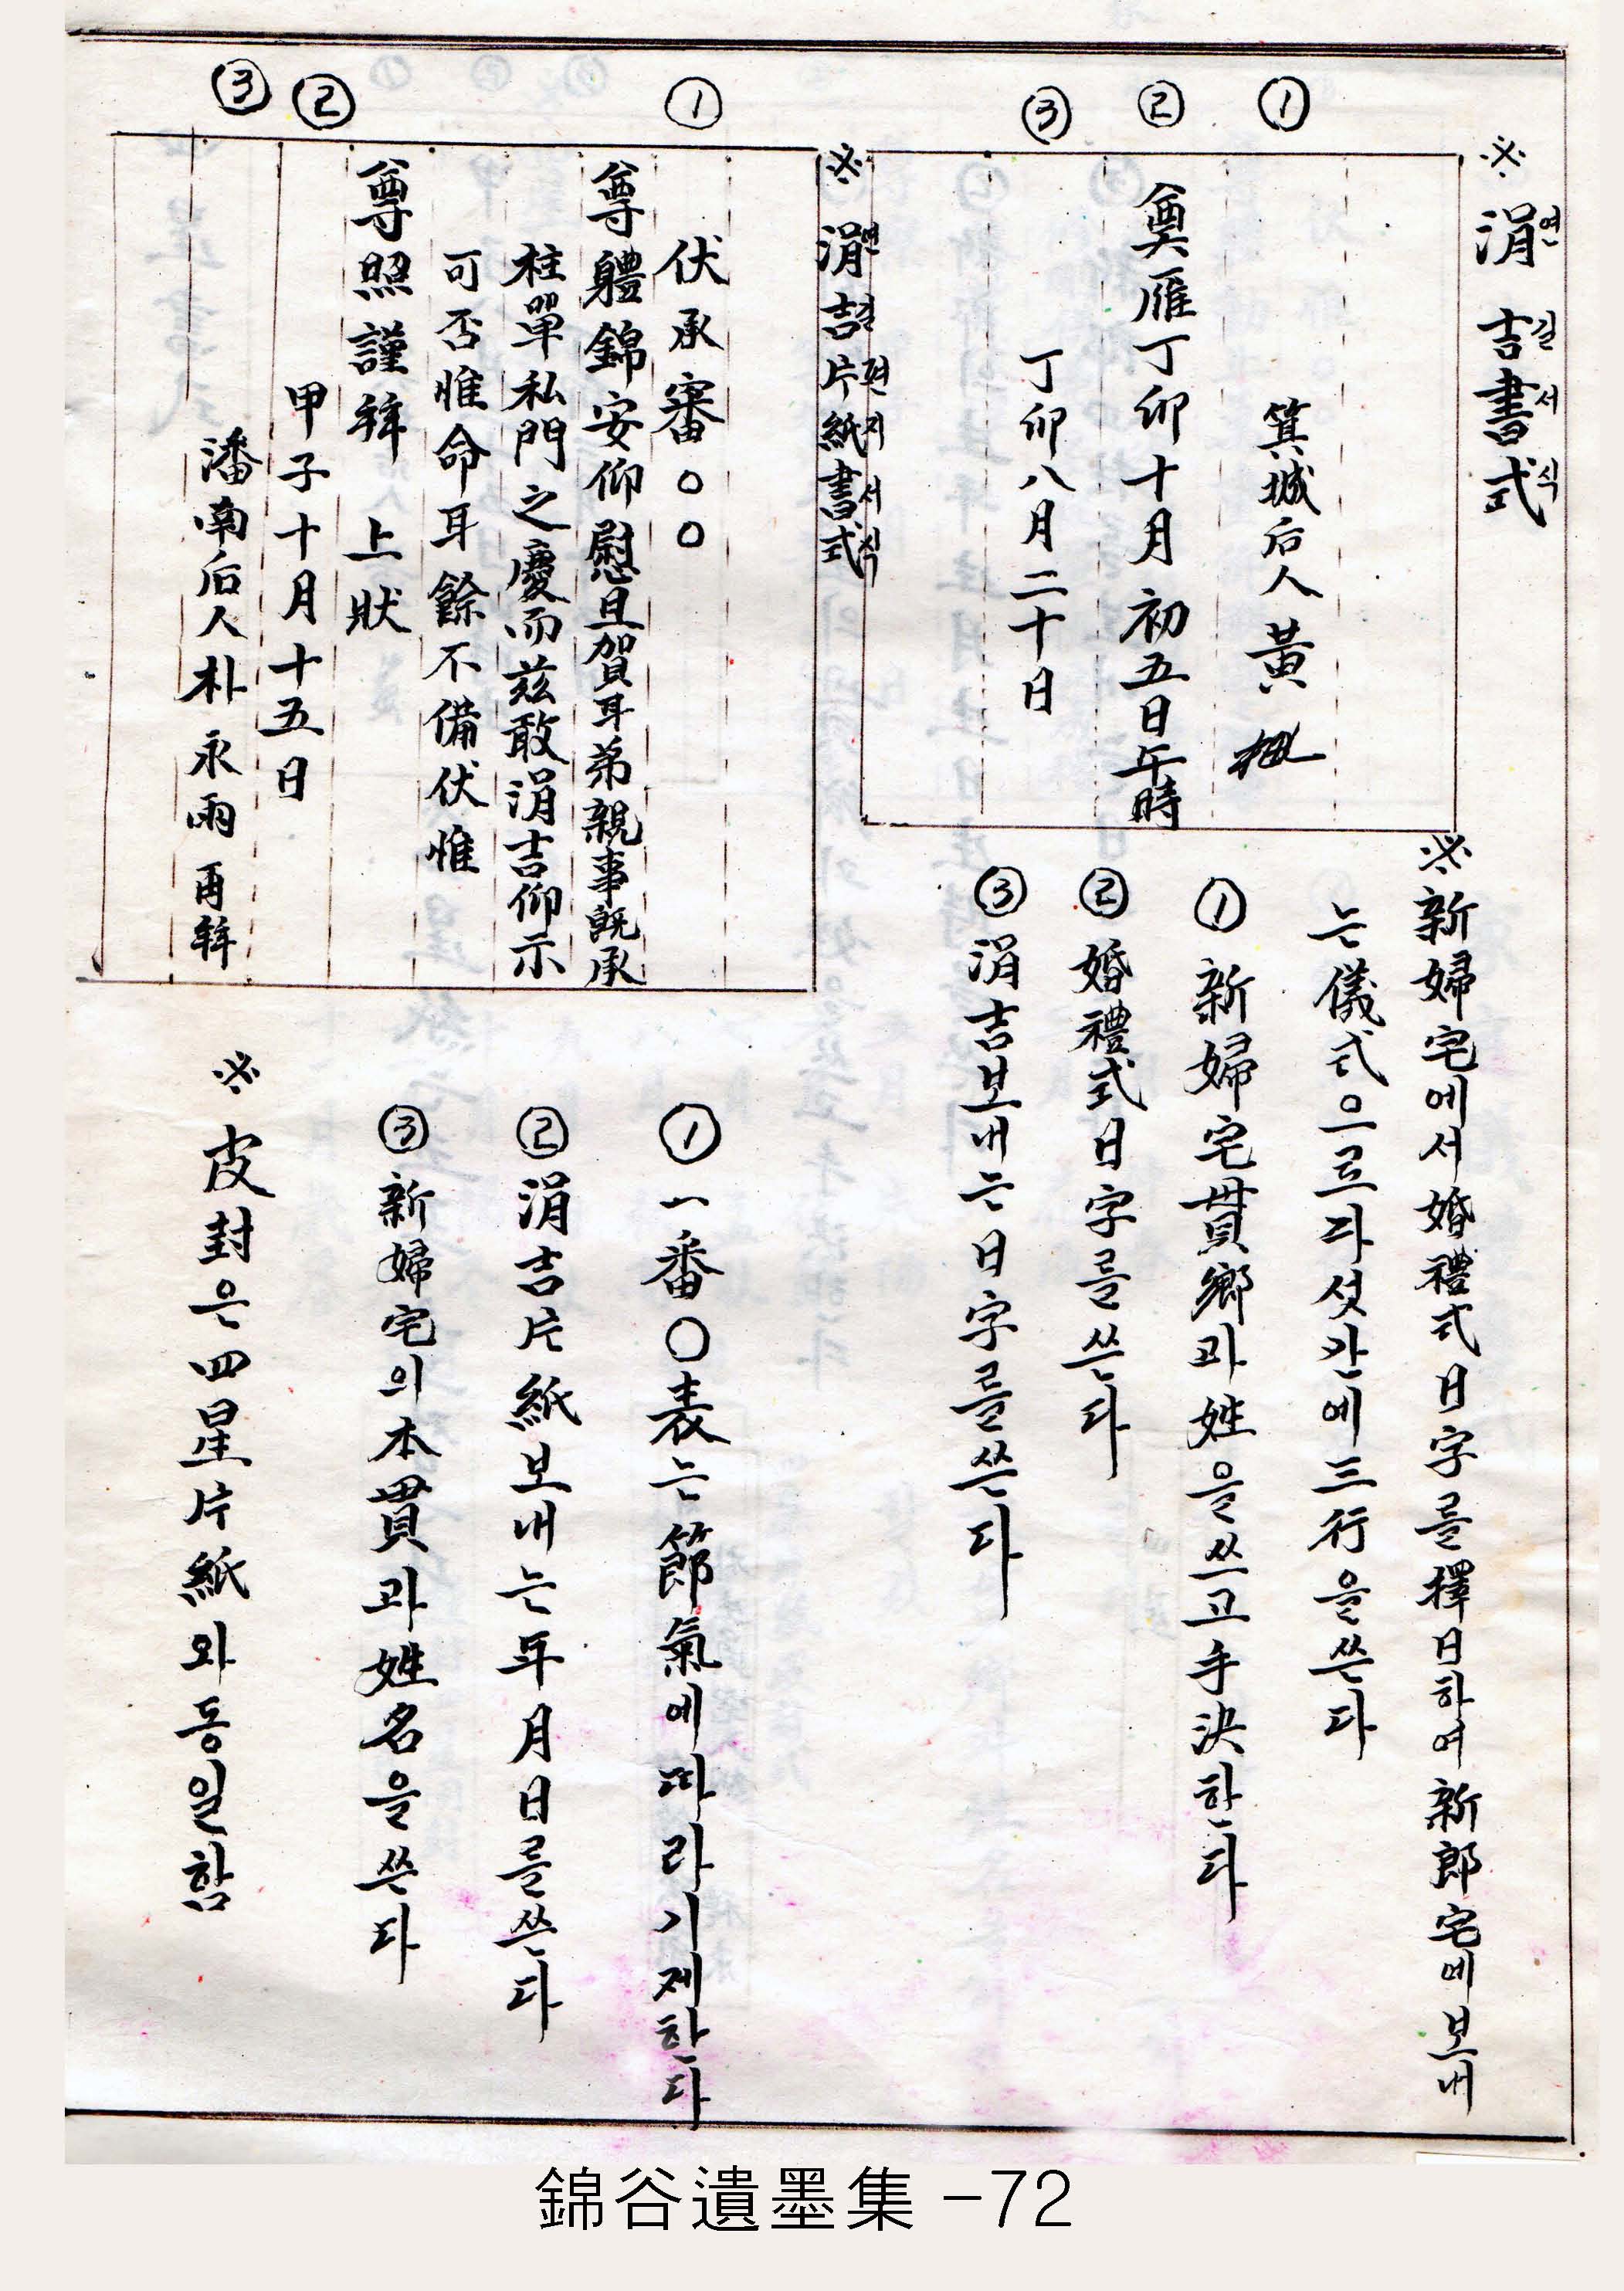 ※ 涓吉書式
연길서식
①
箕城后人 黃
②
奠雁丁卯十月初五日午時
③
丁卯八月二十日
※新婦宅에서婚禮式日字를擇日하여新郎宅에보내
는儀式으로다섯칸에三行을쓴다
①新婦宅貫鄉과姓을쓰고手決한다
②婚禮式日字를쓴다
③涓吉보내는日字를쓴다
※涓吉片紙書式
연길편지서식
①
伏承審○○
尊軆錦安仰慰且賀耳弟親事旣承
柱單私門之慶而茲敢涓吉仰示
可否惟命耳餘不備伏惟
尊照謹拜 上狀
②
甲子十月十五日
③
潘南后人朴永雨再拜
①一番○表는節氣에따라기제한다
②涓吉片紙보내는年月日를쓴다
③新婦宅의本貫과姓名을쓴다
※皮封은四星片紙와동일함
錦谷遺墨集 -72